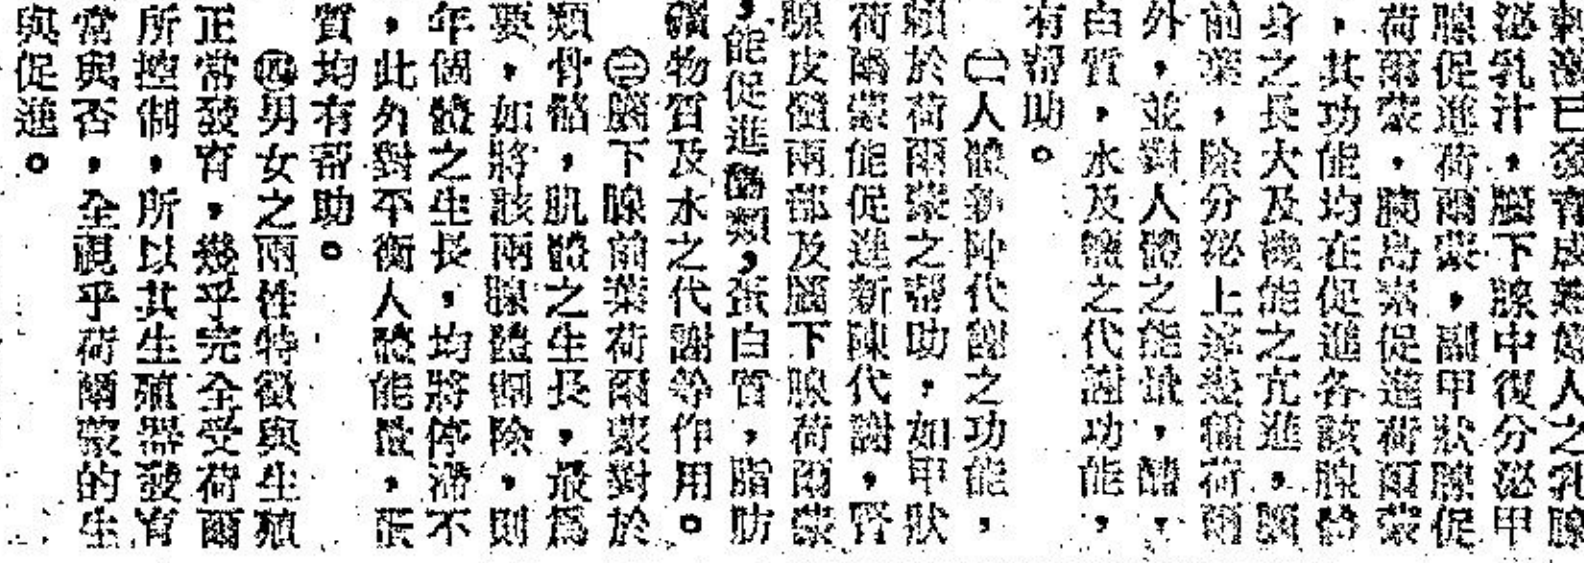 刺激已發育成熟婦人之乳腺
泌乳汁，腦下腺中復分泌甲
腺促進荷爾蒙，副甲狀腺促
荷爾蒙，胰島素促進荷爾蒙
，其功能均在促進各該腺體
身之長大及機能之亢進，腦
前葉，除分泌上述幾種荷爾
外，並對人體之能量，醣，
白質，水及鹽之代謝功能，
有帮助。
㊁人體新陳代謝之功能，
賴於荷爾蒙之帮助，如甲狀
荷爾蒙能促進新陳代謝，腎
腺皮髓兩部及腦下腺荷爾蒙
，能促進醣類，蛋白質，脂肪
礦物質及水之代謝等作用。
㊂腦下腺前葉荷爾蒙對於
類骨骼，肌體之生長，最爲
要，如將該兩腺體割除，則
年個體之生長，均將停滯不
，此外對平衡人體能量，蛋
質均有帮助。
㊃男女之兩性特徵與生殖
正常發育，幾乎完全受荷爾
所控制，所以其生殖器發育
常與否，全視乎荷爾蒙的生
與促進。